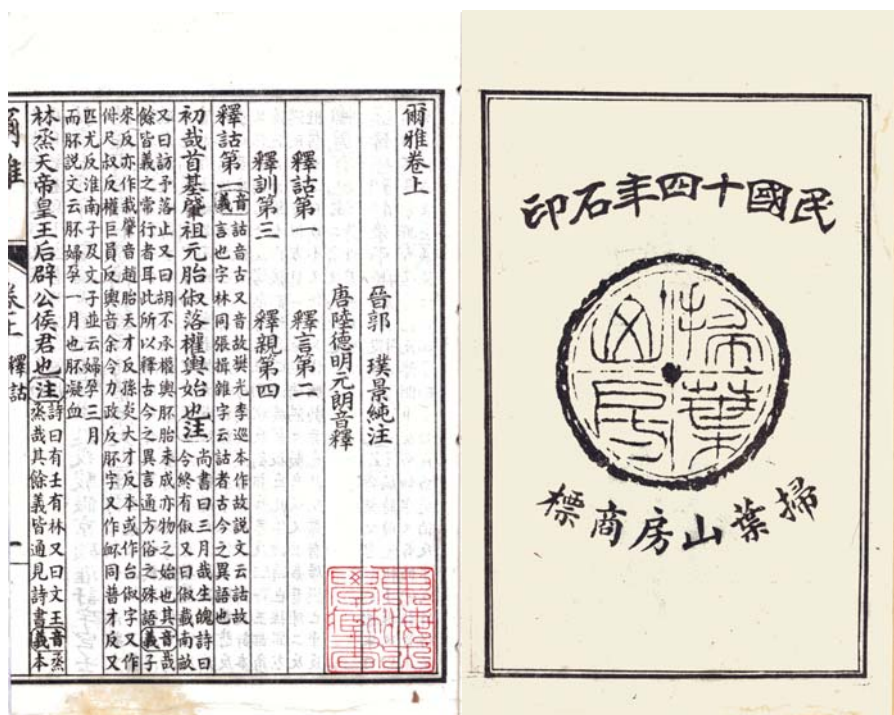 民國十四年石印
掃葉山房
掃葉山房商標
爾雅卷上
晉郭 璞景純注
唐陸德明元朗音釋
釋詁第一 釋言第二
釋訓第三 釋親第四
釋詁第一
音詁音古又音故樊光李巡本作故說文云詁故
義言也字林同張揖雜字云詁者古今之異語也
初哉首基肇祖元胎俶落權輿始也注
尚書曰三月哉生魄詩曰
令終有俶又曰俶載南畝
又曰訪予落止又曰胡不承權輿胚胎未成亦物之始也其音哉
餘皆義之常行者耳此所以釋古今之異言通方俗之殊語義子
來反亦作栽肇音趙胎天才反孫炎大才反本或作台俶字又作
尺叔反權巨員反輿音余令力政反胚字又作衃同普才反又
匹尤反淮南子及文子並云婦孕三月
而胚說文云胚婦孕一月也胚凝血
林烝天帝皇王后辟公侯君也注
詩曰有壬有林又曰文王音烝
烝哉其餘義皆通見詩書義本
爾雅 卷上 釋詁 一